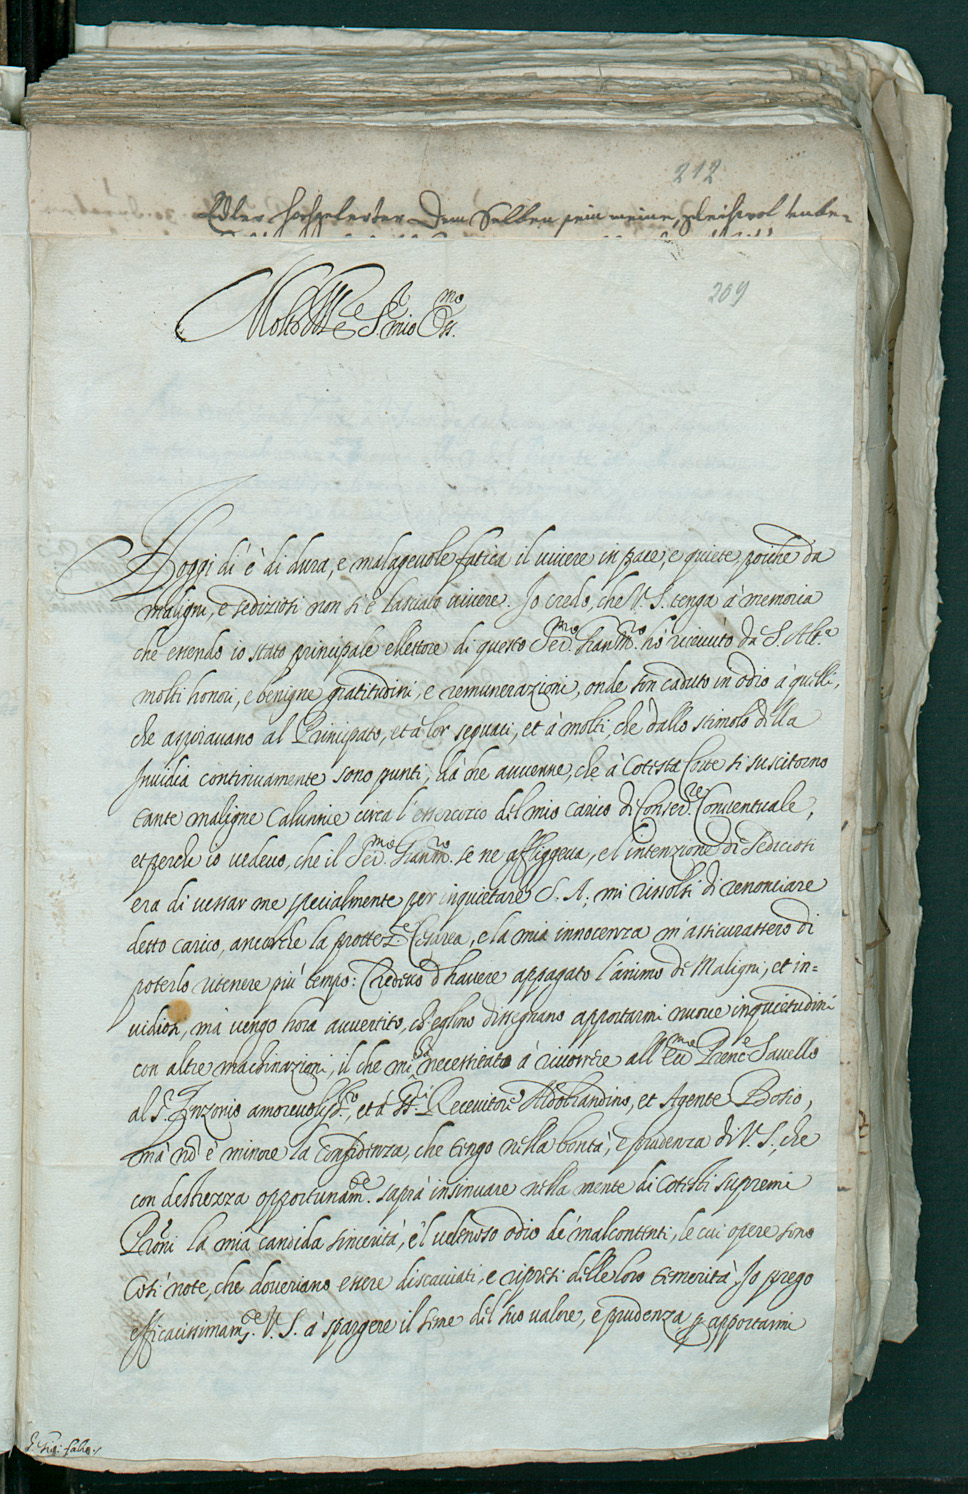 212
Edler hochgelerter Dem Selben sein meine, gleichwol unbe-
209
Molto Ill.e S.r mio Oss.mo
Hoggi dì è di dura, e malagevole fatica il vivere in pace, e quiete, poiche da
maligni, e sediziosi non si è lasciato vivere. Io credo, che V. S. tenga à memoria
che essendo io stato principale ellettore di questo Ser.mo Gran M.ro hò ricevuto da S. Alt.a
molti honori, e benigne gratitudini, e remunerazioni, onde son caduto in odio à quelli,
che aspiravano al Principato, et à lor seguaci, et à molti, che dallo stimolo della
Invidia continuamente sono punti, dà che avvenne, che à cotesta Corte si suscitorno
tante maligne calunnie circa l'essercizio del mio carico di Conser.re Conventuale,
et perche io vedevo, che il Ser.mo Gran M.ro se ne affliggeva, e l'intenzione di Sediciosi
era di vessar me specialmente per inquietare S. A. mi risolsi di renonciare
detto carico, ancorche la prottez.e Cesarea, e la mia innocenza m'assicurassero di
poterlo ritenere più tempo: Credevo d'havere appagato l'animo de Maligni, et in=
vidiosi, mà vengo hora avvertito, ch'eglino dissegnano apportarmi nuove inquietudini
con altre machinazioni, il che mi hà necessitato à ricorrere all'Ecc.mo Prenc.e Savello
al S.r Inzonio amorevoliss.o, et à SS.ri Recevitore Aldobrandino, et Agente Bosio,
mà nõ è minore la confidenza, che tengo nella bontà, e prudenza di V. S., che
con destrezza opportunam.te saprà insinuare nella mente di cotesti supremi
Prõni la mia candida sincerità, e'l velenoso odio de' malcontenti, le cui opere sono
così note, che doveriano essere discacciati, e ripresi delle loro temerità. Io prego
efficacissimam.te V. S. à spargere il seme del suo valore, e prudenza p apportarmi